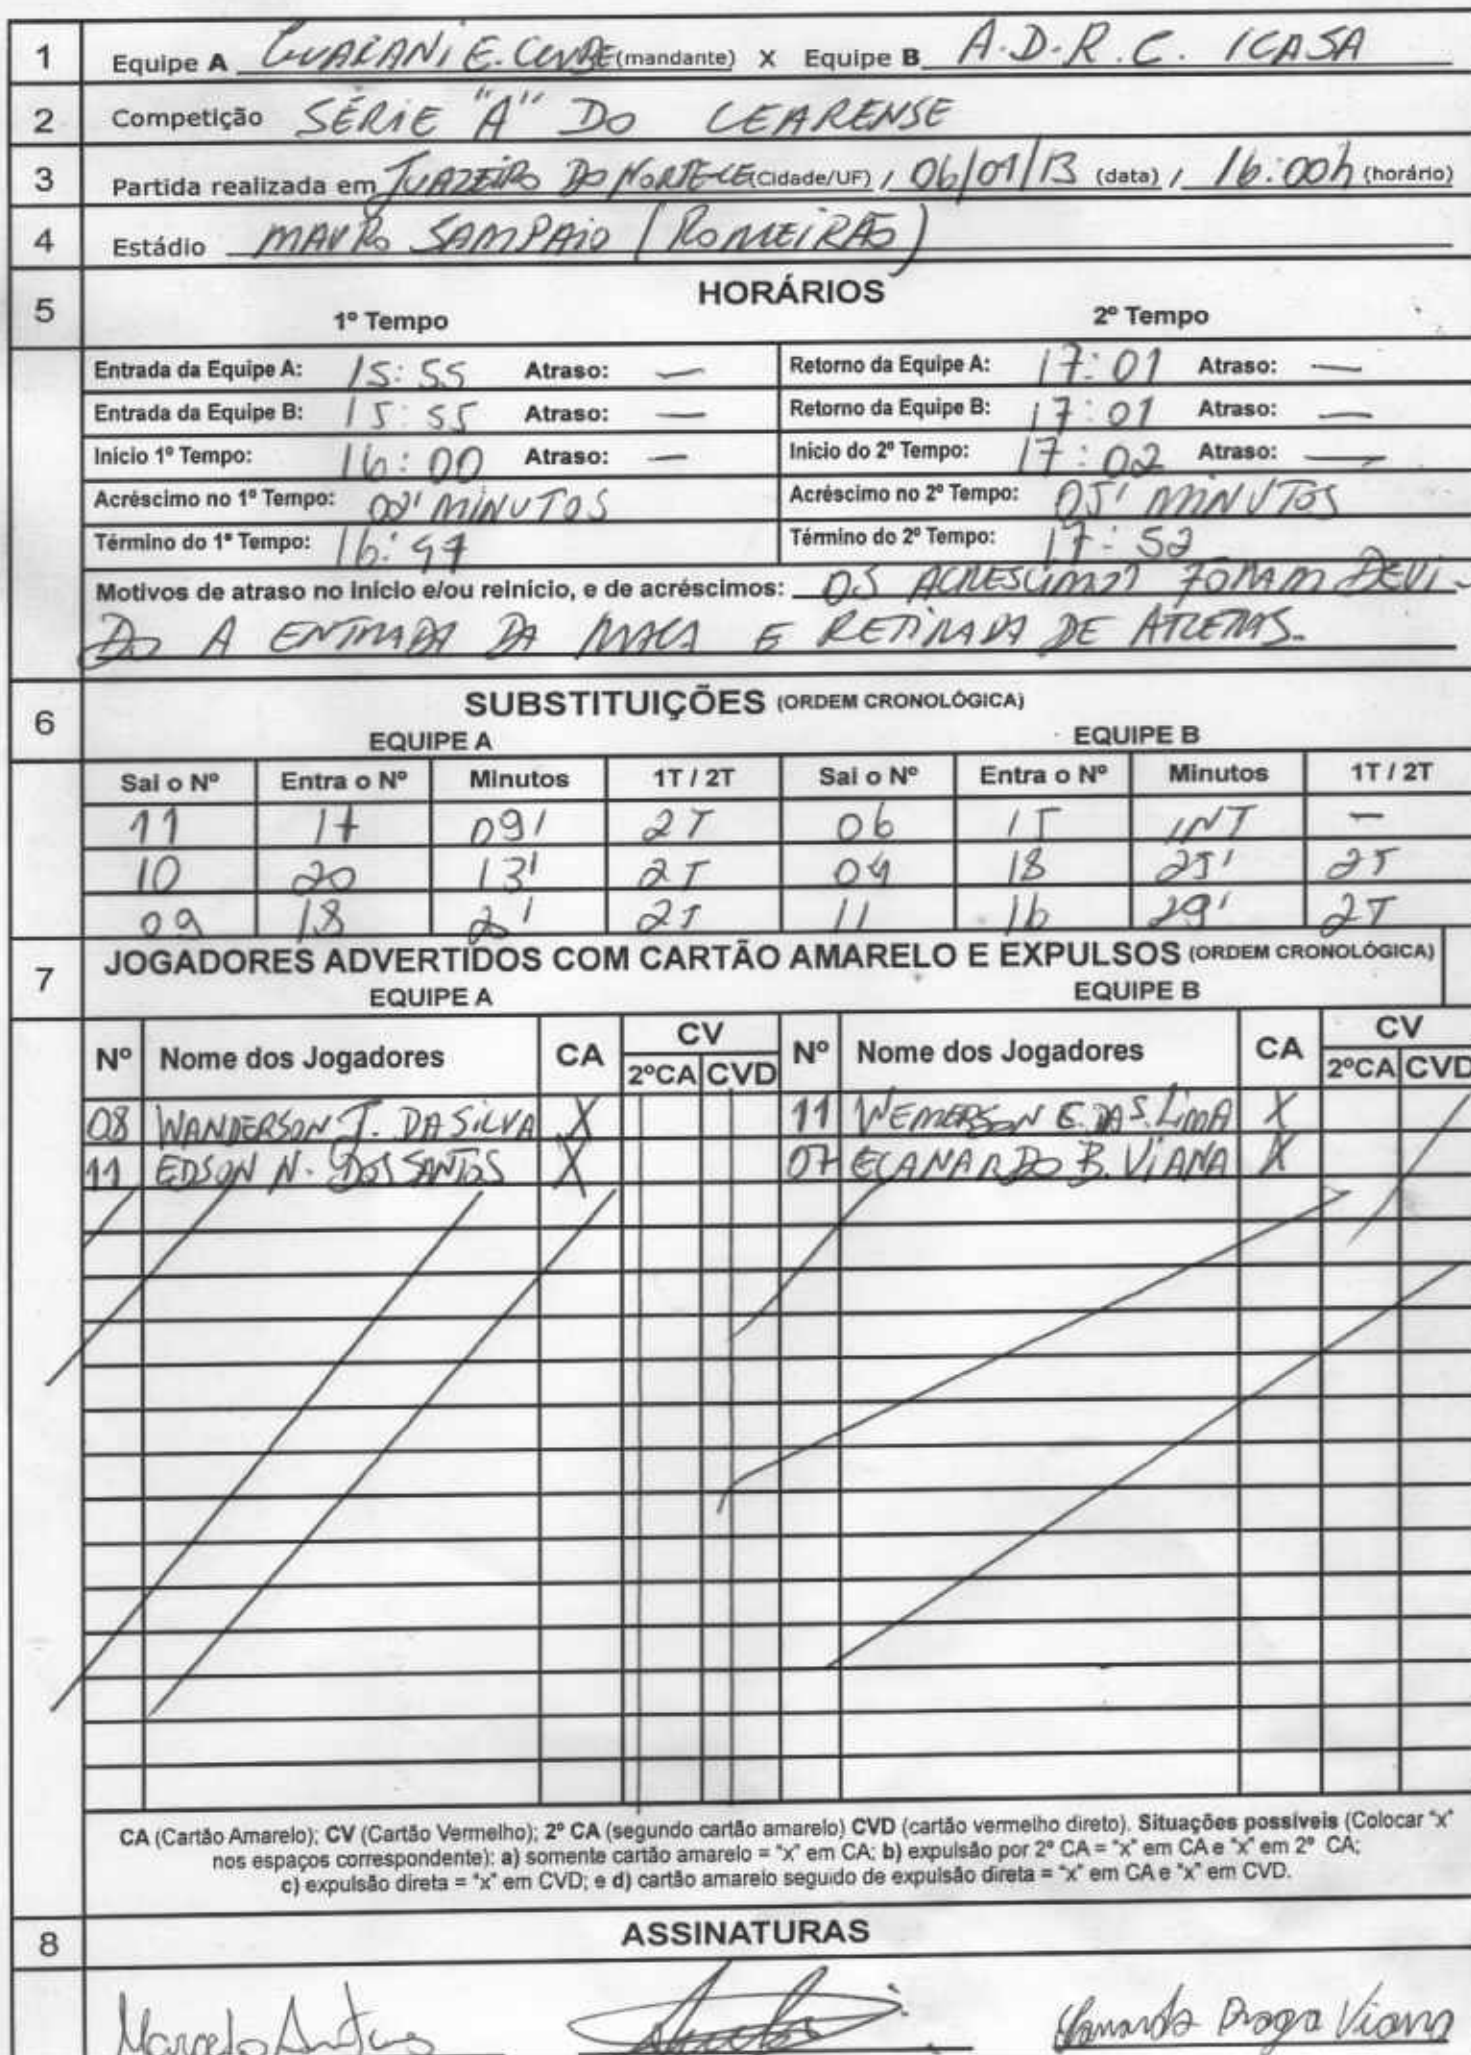 1 Equipe A GUARANI E. CLUBE (mandante) X Equipe B A.D.R.C. ICASA
2 Competição SÉRIE "A" DO CEARENSE
3 Partida realizada em JUAZEIRO DO NORTE-CE (Cidade/UF) / 06/01/13 (data) / 16:00h (horário)
4 Estádio MAURO SAMPAIO (ROMEIRÃO)
5 HORÁRIOS
1º Tempo 2º Tempo
Entrada da Equipe A: 15:55 Atraso: — Retorno da Equipe A: 17:01 Atraso: —
Entrada da Equipe B: 15:55 Atraso: — Retorno da Equipe B: 17:01 Atraso: —
Início 1º Tempo: 16:00 Atraso: — Início do 2º Tempo: 17:02 Atraso: —
Acréscimo no 1º Tempo: 02' MINUTOS Acréscimo no 2º Tempo: 05' MINUTOS
Término do 1º Tempo: 16:47 Término do 2º Tempo: 17:52
Motivos de atraso no início e/ou reinício, e de acréscimos: OS ACRESCIMOS FORAM DEVI-
DO A ENTRADA DA MACA E RETIRADA DE ATLETAS.
6 SUBSTITUIÇÕES (ORDEM CRONOLÓGICA)
EQUIPE A EQUIPE B
Sai o Nº Entra o Nº Minutos 1T / 2T Sai o Nº Entra o Nº Minutos 1T / 2T
11 17 09' 2T 06 15 INT —
10 20 13' 2T 04 18 25' 2T
09 18 2T 11 16 29' 2T
7 JOGADORES ADVERTIDOS COM CARTÃO AMARELO E EXPULSOS (ORDEM CRONOLÓGICA)
EQUIPE A EQUIPE B
Nº Nome dos Jogadores CA CV Nº Nome dos Jogadores CA CV
2ºCA CVD 2ºCA CVD
08 WANDERSON J. DA SILVA X 11 WEMERSON E. DA S. LIMA X
11 EDSON N. DOS SANTOS X 07 ELANARDO B. VIANA X
CA (Cartão Amarelo); CV (Cartão Vermelho); 2º CA (segundo cartão amarelo) CVD (cartão vermelho direto). Situações possíveis (Colocar "x"
nos espaços correspondente): a) somente cartão amarelo = "x" em CA; b) expulsão por 2º CA = "x" em CA e "x" em 2º CA;
c) expulsão direta = "x" em CVD; e d) cartão amarelo seguido de expulsão direta = "x" em CA e "x" em CVD.
8 ASSINATURAS
Marcelo Elanardo Braga Viana